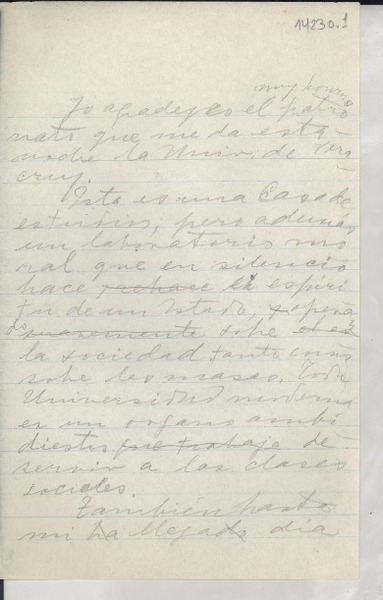 14230.1
muy honroso
Yo agradezco el patro
nato que me da esta
noche la Univ. de Vera
cruz.
Esta es una Casa de
estudios, pero además
un laboratorio mo
ral que en silencio
hace rehace el espíri
tu de un Estado, y opera
do nuevamente sobre
la sociedad tanto como
sobre las masas. Toda
Universidad moderna
es un organo ambi
diestro que trabaja de
servir a las clases
sociales.
También hasta
mi ha llegado día